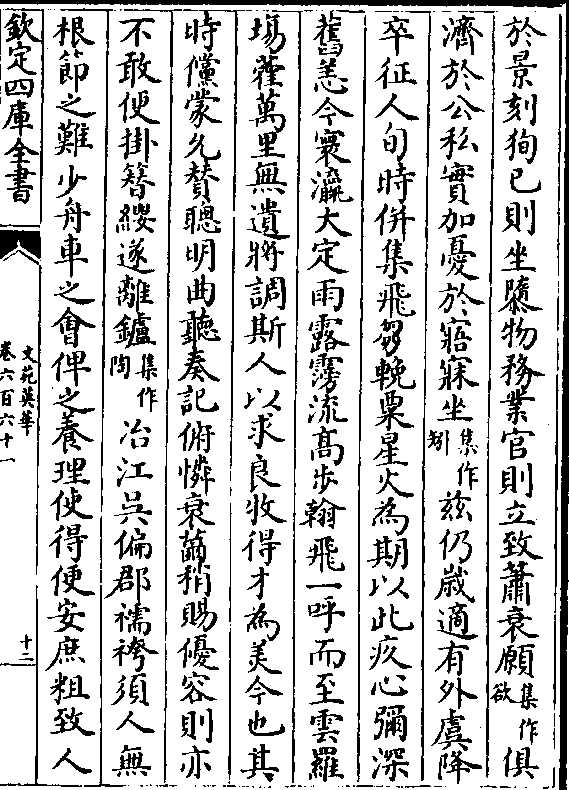 於景刻狥已則坐隳物務業官則立致蕭衰願集作欲俱
濟於公私實加憂於寤寐坐集作矧兹仍歲適有外虞降
卒征人旬時併集飛芻輓粟星火為期以此疚心彌深
舊恙今寰瀛大定雨露霶流髙步翰飛一呼而至雲羅
塲藿萬里無遺將調斯人以求良牧得才為美今也其
時儻蒙允賛聰明曲聽奏記俯憐衰薾稍賜優容則亦
不敢便掛簪纓遂離鑪集作陶冶江吳偏郡襦袴須人無
根節之難少舟車之會俾之養理使得便安庶粗致人
欽定四庫全書
文苑英華
卷六百六十一
十二